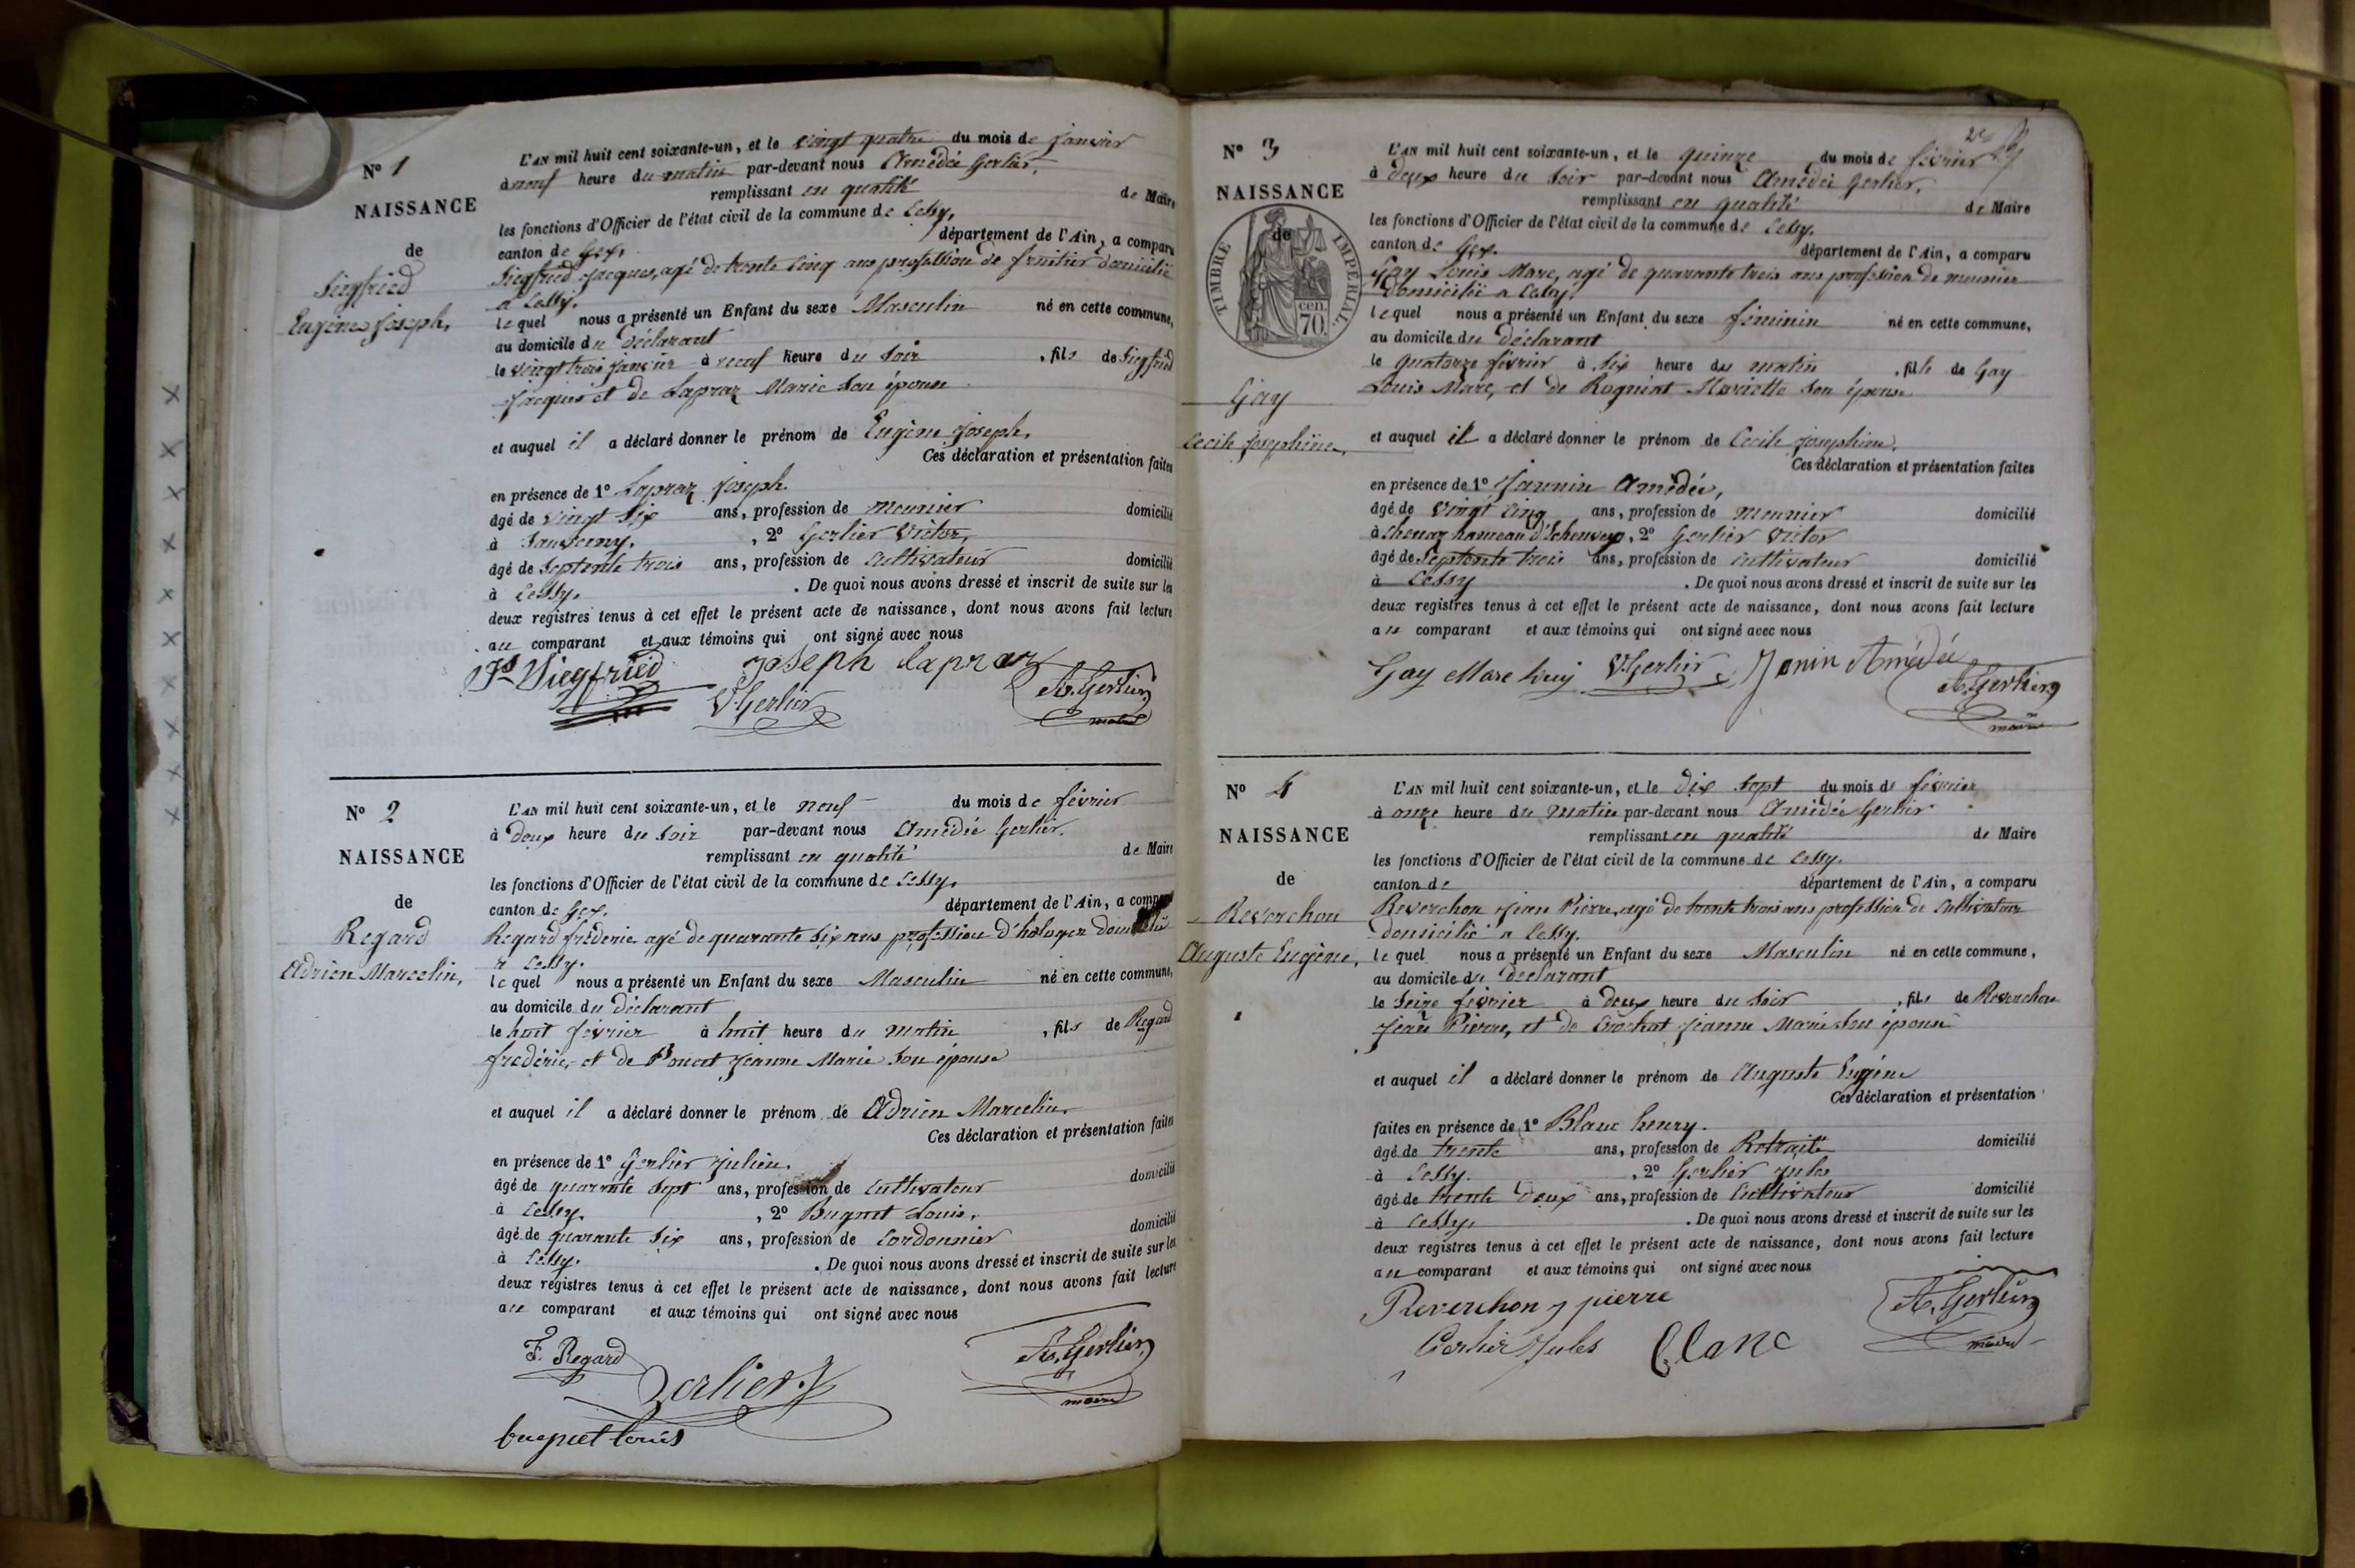 N° 1
NAISSANCE
de
Siegfried
Eugène Joseph,
L'AN mil huit cent soixante-un, et le vingt quatre du mois de janvier
à neuf heure du matin par-devant nous Amédée Gerlier,
remplissant en qualité de Maire
les fonctions d'Officier de l'état civil de la commune de Cessy,
canton de Gex, département de l'Ain, a comparu
Siegfried Jacques, agé de trente cinq ans profession de fruitier domicilié
a Cessy.
lequel nous a présenté un Enfant du sexe Masculin né en cette commune,
au domicile du Déclarant
le vingt trois janvier à neuf heure du soir, fils de Siegfried
Jacques et de Lapraz Marie son épouse
et auquel il a déclaré donner le prénom de Eugène Joseph,
Ces déclaration et présentation faites
en présence de 1° Lapraz Joseph.
âgé de vingt six ans, profession de meunier domicilié
à Sauverny, , 2° Gerlier Victor,
âgé de Septente trois ans, profession de cultivateur domicilié
à Cessy. . De quoi nous avons dressé et inscrit de suite sur les
deux registres tenus à cet effet le présent acte de naissance, dont nous avons fait lecture
au comparant et aux témoins qui ont signé avec nous
Js Siegfried Joseph lapraz
V. Gerlier A. Gerlier
maire
N° 2
NAISSANCE
de
Regard
Adrien Marcelin,
L'AN mil huit cent soixante-un, et le neuf du mois de février
à Deux heure du soir par-devant nous Amédée Gerlier.
remplissant en qualité de Maire
les fonctions d'Officier de l'état civil de la commune de Cessy,
canton de Gex. département de l'Ain, a comparu
Regard frédéric agé de quarante six ans profession d'hologer domicilié
a Cessy.
lequel nous a présenté un Enfant du sexe Masculin né en cette commune,
au domicile du Déclarant
le huit février à huit heure du matin, fils de Regard
frédéric, et de Poncet Jeanne Marie son épouse
et auquel il a déclaré donner le prénom de Adrien Marcelin.
Ces déclaration et présentation faites
en présence de 1° Gerlier Julien.
âgé de quarante sept ans, profession de cultivateur domicilié
à Cessy. , 2° Buquet Louis,
âgé de quarante six ans, profession de Cordonnier domicilié
à Cessy. . De quoi nous avons dressé et inscrit de suite sur les
deux registres tenus à cet effet le présent acte de naissance, dont nous avons fait lecture
au comparant et aux témoins qui ont signé avec nous
F. Regard A. Gerlier
Gerlier. J maire
buquet louis
N° 3
NAISSANCE
de
TIMBRE IMPERIAL.
cen
70.
Gay
Cecile Josephine,
L'AN mil huit cent soixante-un, et le quinze du mois de février
à deux heure du soir par-devant nous Amédée Gerlier,
remplissant en qualité de Maire
les fonctions d'Officier de l'état civil de la commune de Cessy.
canton de Gex. département de l'Ain, a comparu
Gay Louis Marc, agé de quarante trois ans profession de meunier
Domicilié a Cessy.
lequel nous a présenté un Enfant du sexe féminin né en cette commune,
au domicile du Déclarant
le quatorze février à six heure du matin, fille de Gay
Louis Marc, et de Roguint Mariette son épouse
et auquel il a déclaré donner le prénom de Cecile Josephine,
Ces déclaration et présentation faites
en présence de 1° Jannin Amédée,
âgé de vingt cinq ans, profession de meunier domicilié
à Chenaz hameau d'Echenvex, 2° Gerlier Victor
âgé de Septente trois ans, profession de cultivateur domicilié
à Cessy . De quoi nous avons dressé et inscrit de suite sur les
deux registres tenus à cet effet le présent acte de naissance, dont nous avons fait lecture
au comparant et aux témoins qui ont signé avec nous
Gay Marc Luy V. Gerlier Janin Amédée
A. Gerlier
maire
N° 4
NAISSANCE
de
Reverchon
Auguste Eugène,
L'AN mil huit cent soixante-un, et le Dix sept du mois de février
à onze heure du matin par-devant nous Amédée Gerlier
remplissant en qualité de Maire
les fonctions d'Officier de l'état civil de la commune de Cessy.
canton de département de l'Ain, a comparu
Reverchon Jean Pierre, agé de trente trois ans profession de Cultivateur
Domicilié a Cessy.
lequel nous a présenté un Enfant du sexe Masculin né en cette commune,
au domicile du Déclarant
le seize février à deux heure du soir, fils de Reverchon
Jean Pierre, et de Crochat Jeanne Marie son épouse
et auquel il a déclaré donner le prénom de Auguste Eugène
Ces déclaration et présentation
faites en présence de 1° Blanc henry.
âgé de trente ans, profession de Retraité domicilié
à Cessy. , 2° Gerlier Jules
âgé de trente Deux ans, profession de Cultivateur domicilié
à Cessy, . De quoi nous avons dressé et inscrit de suite sur les
deux registres tenus à cet effet le présent acte de naissance, dont nous avons fait lecture
au comparant et aux témoins qui ont signé avec nous
Reverchon j pierre A. Gerlier
Gerlier Jules Blanc maire